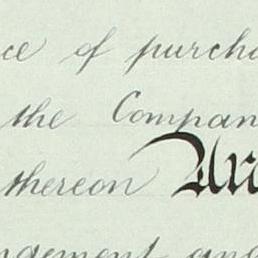 ce of purcha
the Compan
thereon An
ngement and